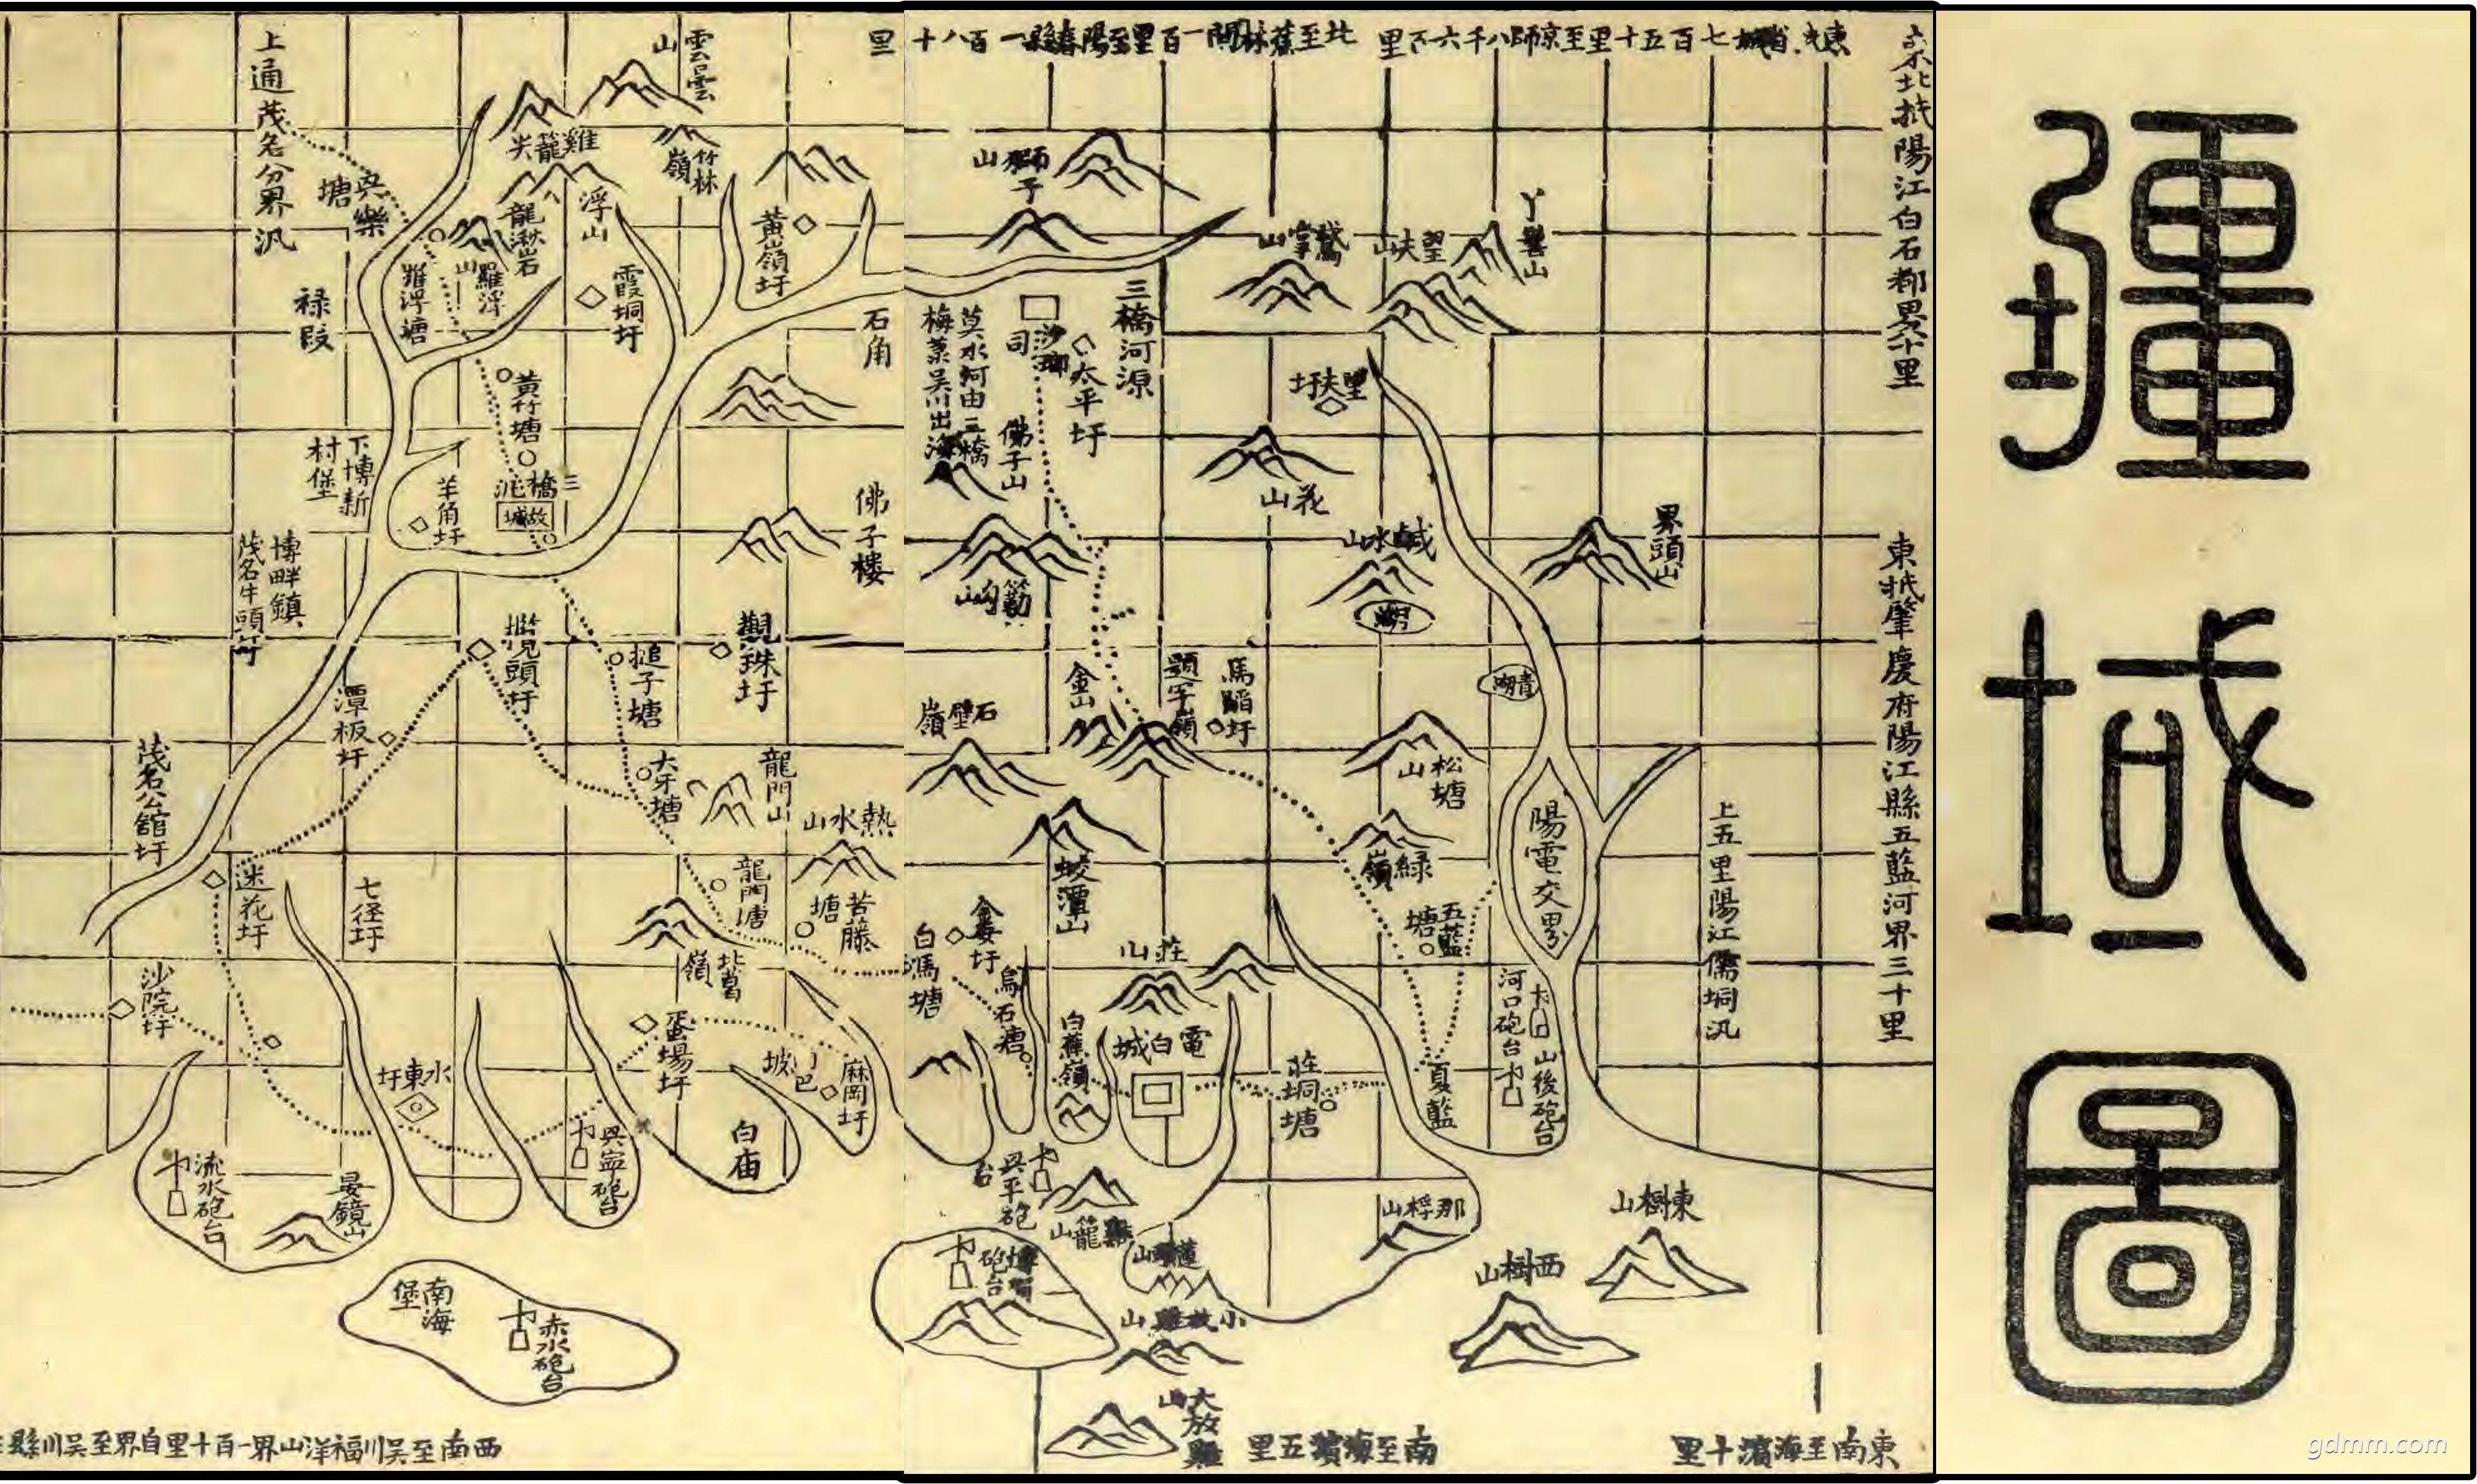 疆域圖
東北抵陽江白石都界六十里
東抵肇慶府陽江縣五藍河界三十里
東南至海濱十里
南至海濱五里
西南至吳川福洋山界一百十里自界至吳川縣
獅子山
鵞掌山
望夫山
丫髻山
三橋河源
沙瑯司
太平圩
莫水河由三橋
梅菉吳川出海
佛子山
望夫圩
花山
鹹水山
界頭山
青湖
金山
題字嶺
馬䧟圩
石壁嶺
松塘山
綠嶺
陽電交界
上五里陽江儒垌汛
蛟潭山
五藍塘
莊山
白馮塘
烏石塘
白蕉嶺
電白城
莊垌塘
夏藍
河口砲台
山後砲台
興平砲台
雞籠山
蓮頭山
博賀砲台
那桴山
東樹山
西樹山
小放雞山
大放雞山
雲雲山
雞籠尖
竹林嶺
浮山
龍湫岩
羅浮山
羅浮塘
霞垌圩
黃嶺圩
石角
上通茂名分界汛
吳樂塘
祿段
黃竹塘
三橋沱
故城
羊角圩
下博新村堡
博畔鎮
茂名牛頭圩
佛子樓
覌珠圩
欖頭圩
搥子塘
大牙塘
龍門山
龍門塘
熱水山
苦藤塘
潭板圩
茂名公館圩
迷花圩
七徑圩
沙院圩
北葛嶺
蛋場圩
麻岡圩
白庙
水東圩
興寧砲台
流水砲台
晏鏡山
南海堡
赤水砲台
gdmm.com